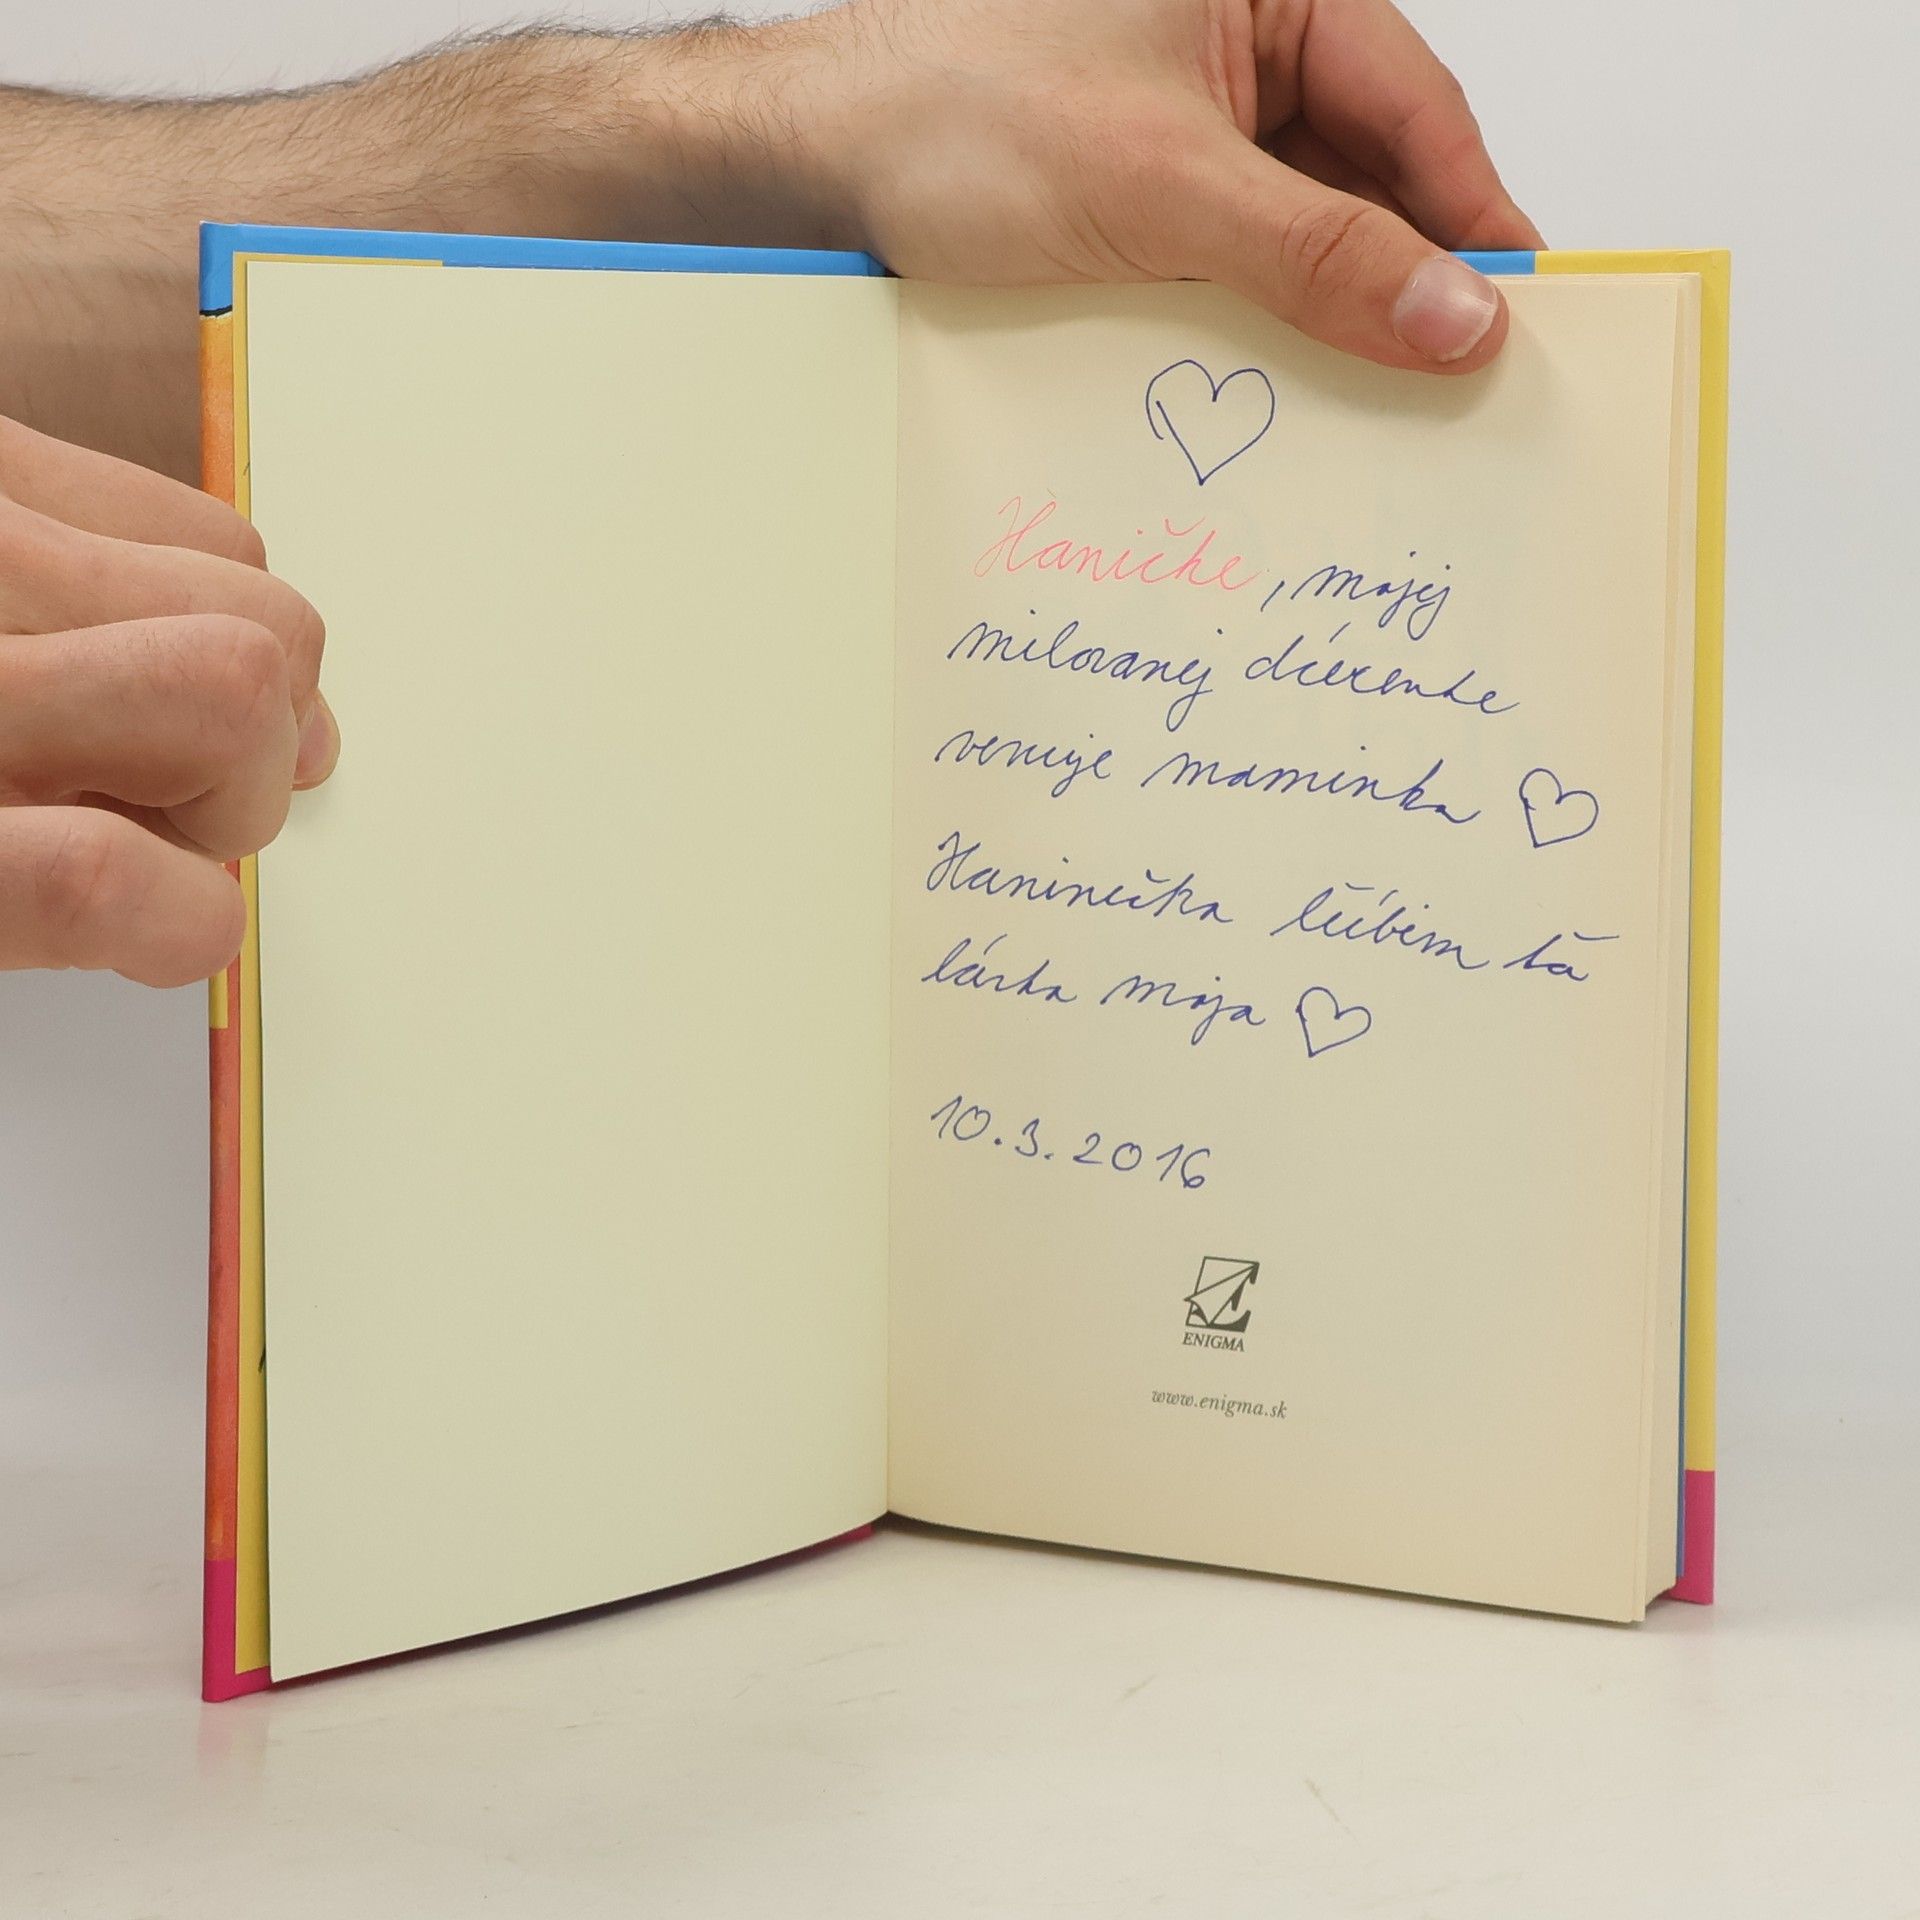 Haničke, mojej
milovanej dcérenke
venuje maminka
Haninečka ľúbim ťa
láska moja
10.3.2016
ENIGMA
www.enigma.sk